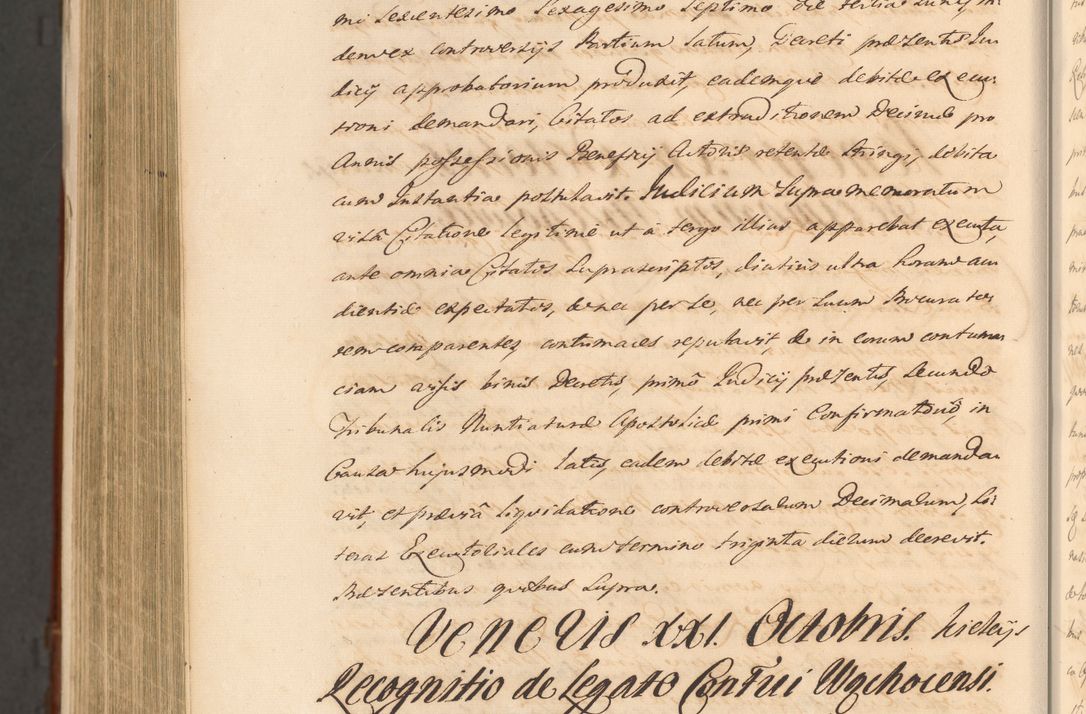 mi Sexcentesimo Sexagesimo Septimo die tertia Junij in
dem ex controversijs Partium latum, Decreti præsentis Ju
dicij approbatorium produxit, eademque debitæ execu
tioni demandari, Citatos ad extraditionem Decimæ pro
Annis possessionis Beneficij Actoris retentæ stringi, debita
cum Instantia postulavit. Judicium Supra memoratum
visâ Citatione legitimè ut à tergo illius apparebat executa,
ante omnia Citatos Suprascriptos, diutius ultra horam au
dientiæ expectatos, &amp; nec per se, nec per Suum Procurato
rem comparentes, contumaces reputavit, &amp; in eorum contuma
ciam visis binis Decretis, primô Judicij præsentis, Secundô
Tribunalis Nuntiaturæ Apostolicæ primi Confirmatorio, in
Causa hujusmodi latis, eadem debitæ executioni demanda
vit, et præviâ liquidatione controversarum Decimarum, Li
teras Executoriales cum termino triginta dierum decrevit.
Præsentibus quibus Supra.
Veneris XXI. Octobris. Kielcijs
Recognitio de Legato Contui Wąchocensi.